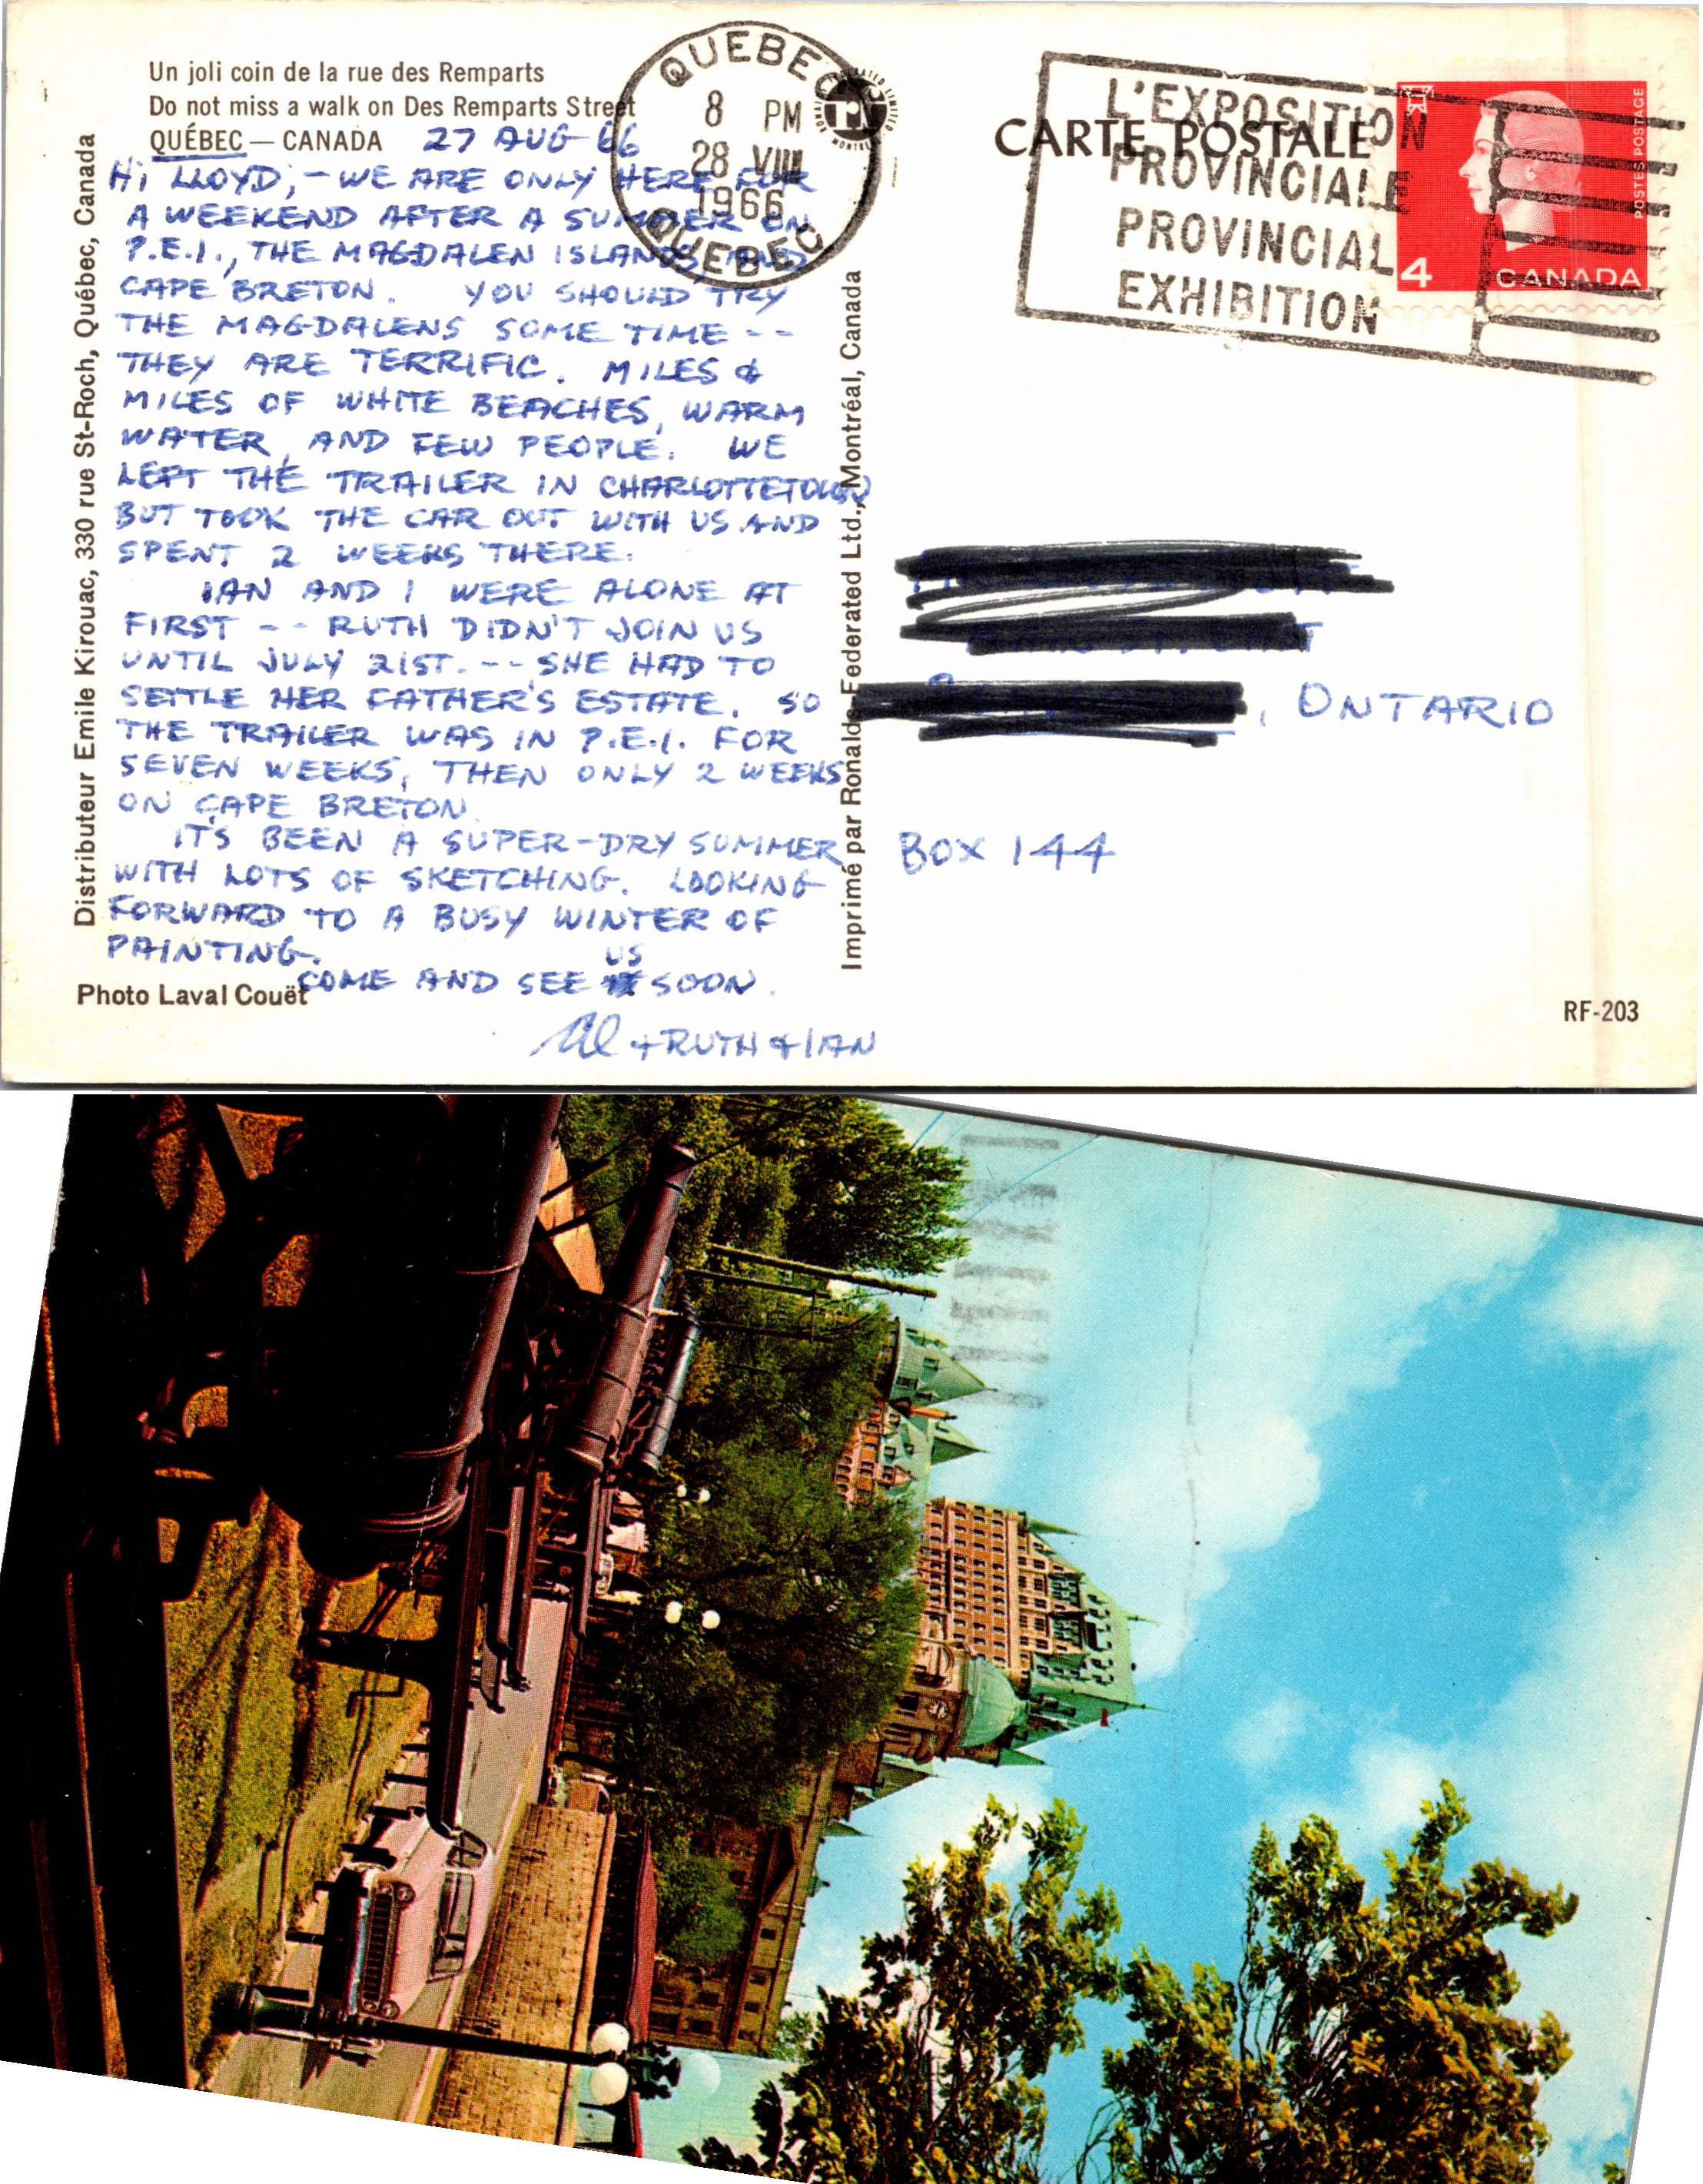 Un joli coin de la rue des Remparts
Do not miss a walk on Des Remparts Street
QUÉBEC — CANADA 27 AUG 66
HI LLOYD; - WE ARE ONLY HERE FOR
A WEEKEND AFTER A SUMMER ON
P.E.I., THE MAGDALEN ISLANDS AND
CAPE BRETON. YOU SHOULD TRY
THE MAGDALENS SOME TIME --
THEY ARE TERRIFIC. MILES &
MILES OF WHITE BEACHES, WARM
WATER, AND FEW PEOPLE. WE
LEFT THE TRAILER IN CHARLOTTETOWN
BUT TOOK THE CAR OUT WITH US AND
SPENT 2 WEEKS THERE.
IAN AND I WERE ALONE AT
FIRST -- RUTH DIDN'T JOIN US
UNTIL JULY 21ST. -- SHE HAD TO
SETTLE HER FATHER'S ESTATE. SO
THE TRAILER WAS IN P.E.I. FOR
SEVEN WEEKS, THEN ONLY 2 WEEKS
ON CAPE BRETON
IT'S BEEN A SUPER-DRY SUMMER
WITH LOTS OF SKETCHING. LOOKING
FORWARD TO A BUSY WINTER OF
PAINTING.
COME AND SEE US SOON.
Al + RUTH & IAN
Photo Laval Couët
Distributeur Emile Kirouac, 330 rue St-Roch, Québec, Canada
Imprimé par Ronalds-Federated Ltd., Montréal, Canada
QUEBEC
8 PM
28 VIII
1966
QUEBEC
CARTE POSTALE
L'EXPOSITION
PROVINCIALE
PROVINCIAL
EXHIBITION
POSTES POSTAGE
4 CANADA
, ONTARIO
BOX 144
RF-203